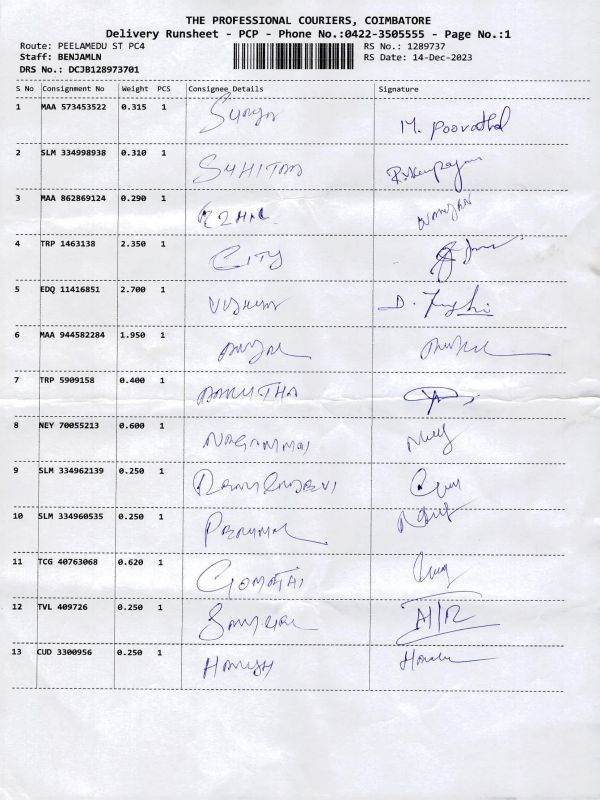 THE PROFESSIONAL COURIERS, COIMBATORE
Delivery Runsheet - PCP - Phone No.:0422-3505555 - Page No.:1
Route: PEELAMEDU ST PC4 RS No.: 1289737
Staff: BENJAMLN RS Date: 14-Dec-2023
DRS No.: DCJB128973701
S No Consignment No Weight PCS Consignee Details Signature
1 MAA 573453522 0.315 1 Surya M. Poovathal
2 SLM 334998938 0.310 1
3 MAA 862869124 0.290 1
4 TRP 1463138 2.350 1 CITY
5 EDQ 11416851 2.700 1 D.
6 MAA 944582284 1.950 1
7 TRP 5909158 0.400 1 AMUTHA
8 NEY 70055213 0.600 1 NAGAMMAI
9 SLM 334962139 0.250 1
10 SLM 334960535 0.250 1
11 TCG 40763068 0.620 1 GOMATAI
12 TVL 409726 0.250 1
13 CUD 3300956 0.250 1 HARISH